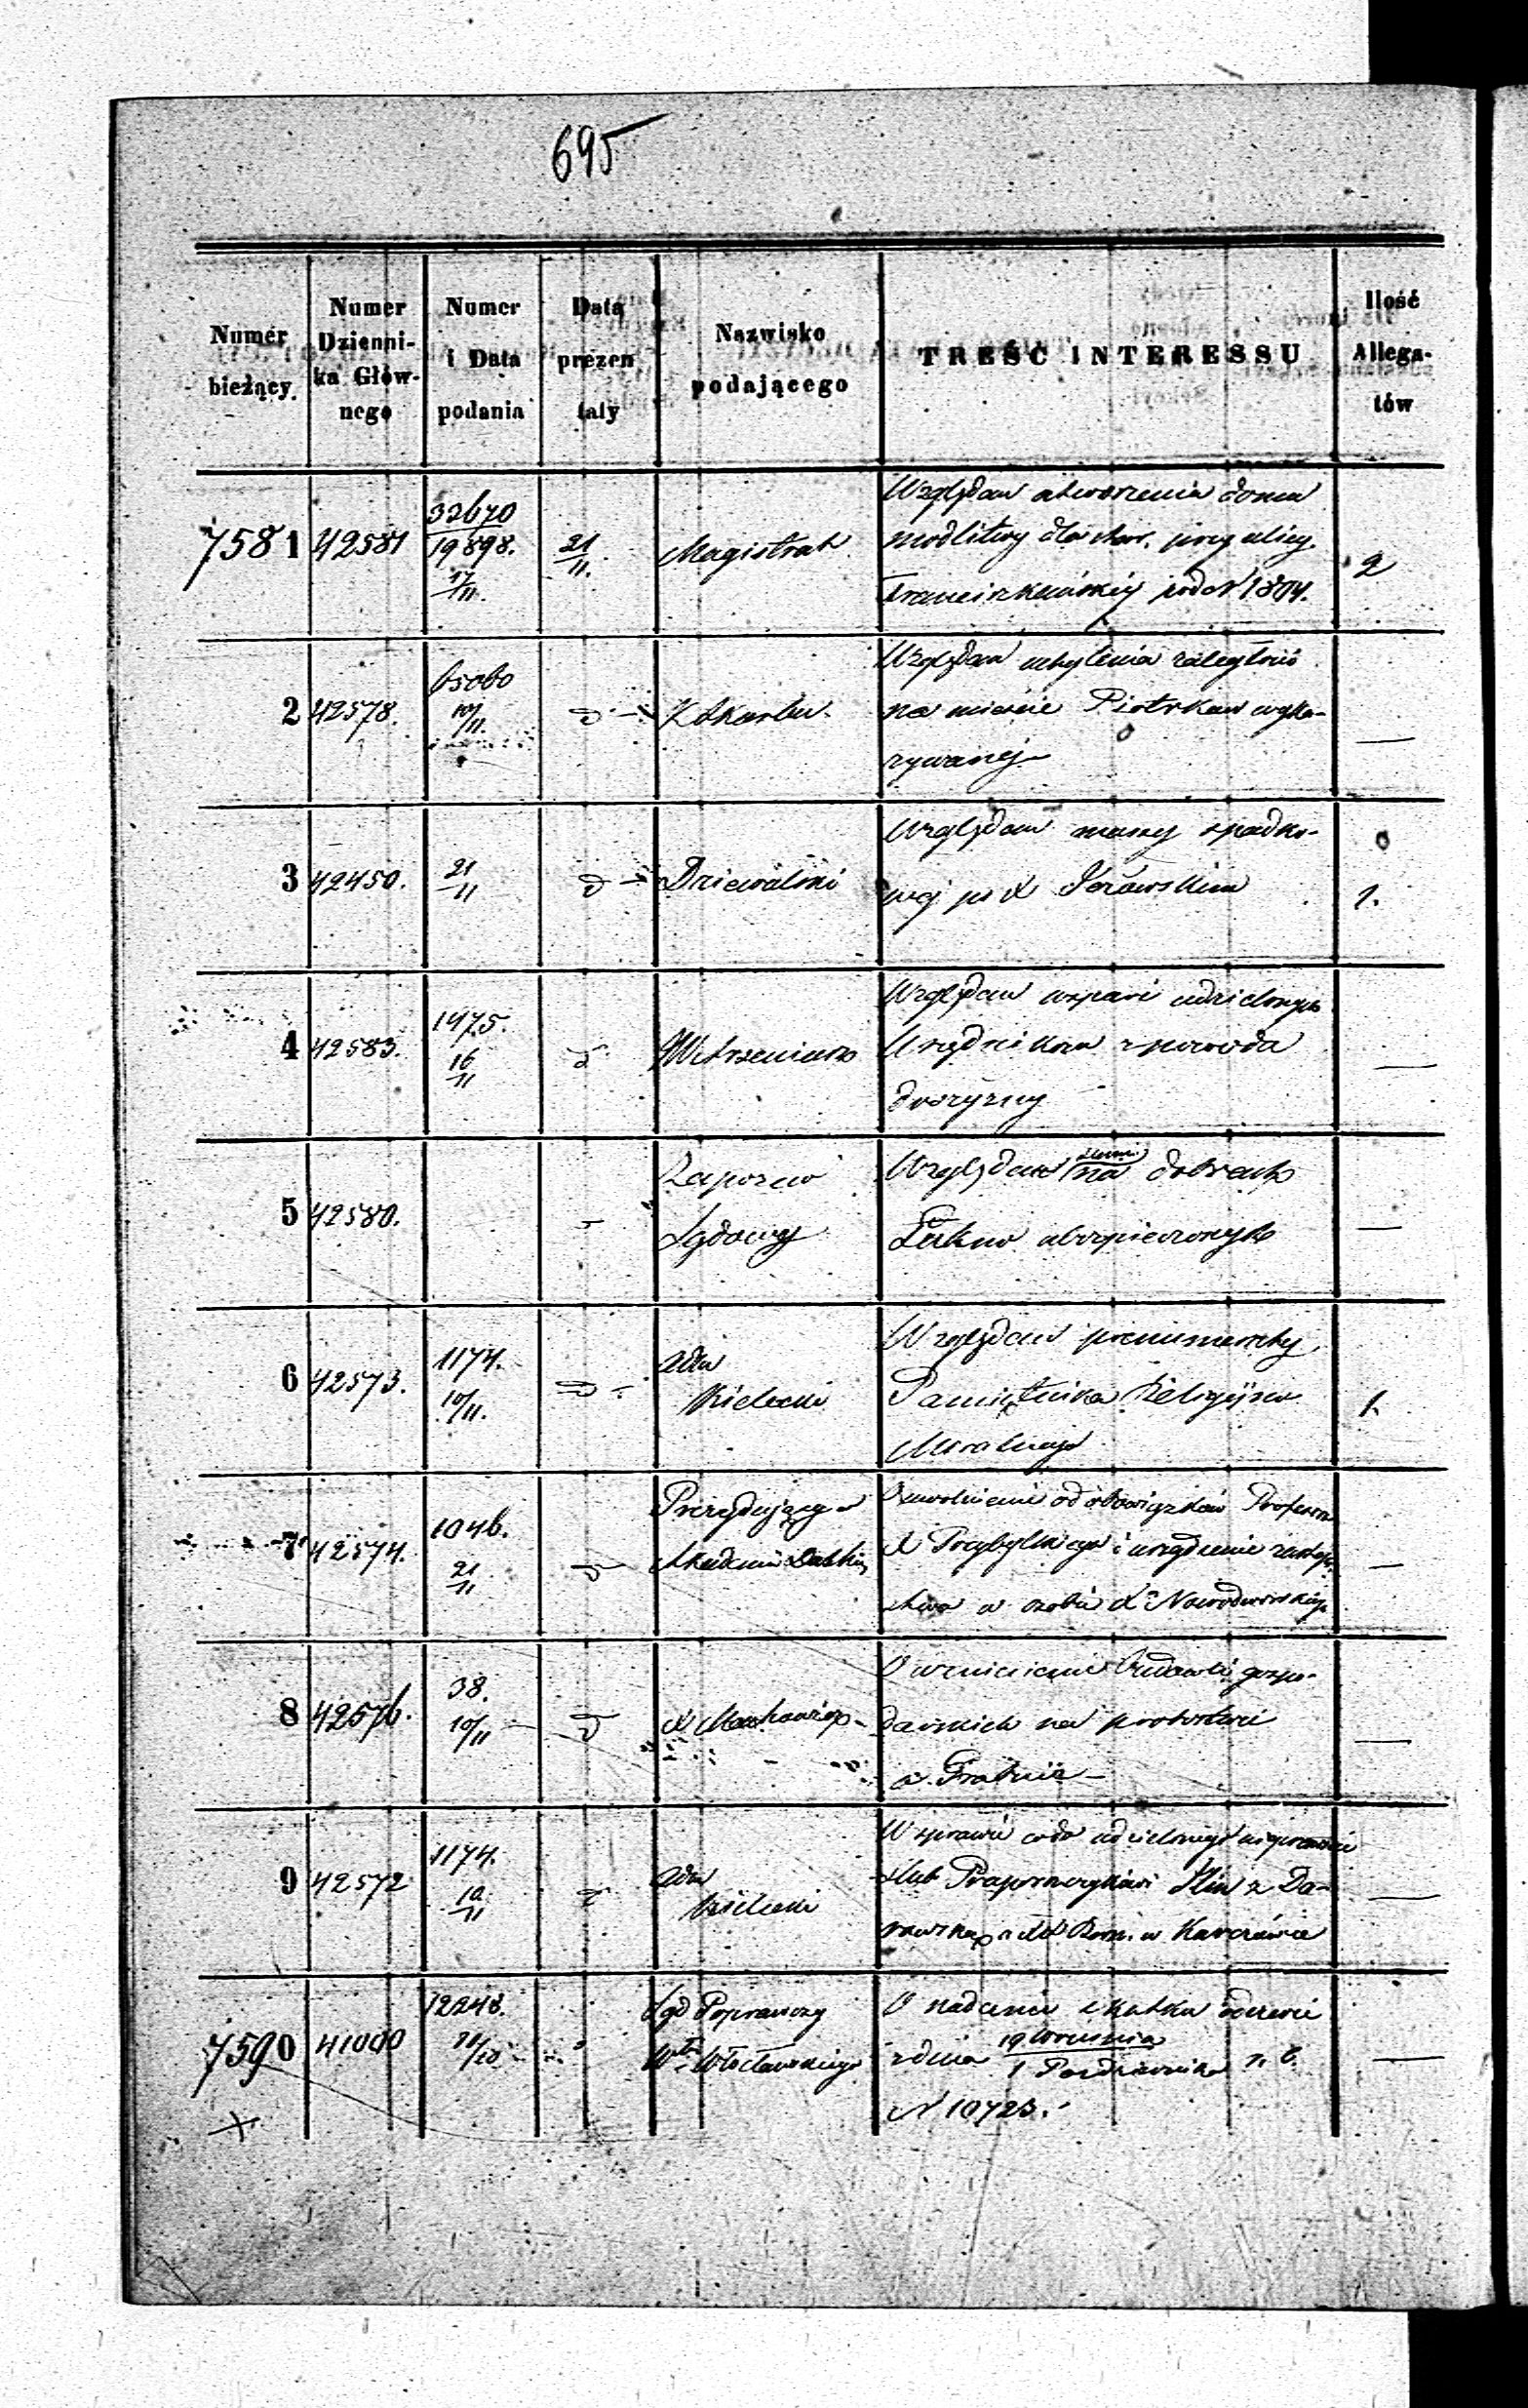 695
Numer bieżący
Numer Dzienni-ka Głów-nego
Numer i Data podania
Data prezen taty
Nazwisko podającego
TREŚĆ INTERESSU
Ilość Allega-tów
7581 42581 32670 / 19898. 17/11. 21/11. Magistrat 2
Względem otworzenia domu
modlitwy dla przy ulicy
Franciszkańskiéj pod N 1804.
2 42578. 65060 10/11. d° K Skarbu —
Względem uchylenia zaległości
na mieście Piotrkow wyka-
zywanej
3 42450. 21/11 d° Dziewulski 1.
Względem massy spadko-
wej po X
4 42583. 1475. 16/11 d° —
Względem wsparć udzielonych
Urzędnikom z powodu
drożyzny
5 42580. —
Zapozew
Sądowy
Względem summ na dobrach
ubezpieczonych
6 42573. 1174. 10/11. d° 1.
Adm
Kielecki
Względem prenumeraty
Pamiętnika Religijno
Moralnego
7 42574. 1046. 21/11 d° —
Prezydujący w
Akademii Duch
Uwolnienie od obowiązków Profesora
X Przybylskiego i urządzenie zastęp-
stwa w osobie X Nowodworskiego
8 42576. 38. 10/11 d° X —
O wzniesienie budowli gospo-
darskich na probostwie
w
9 42572 1174. 10/11 d° —
Adm
Kielecki
W sprawie co do udzielonego
ślub z Da-
w Karczówce
7590 41000 12248. —
Sąd Poprawczy
Włocławskiego
O nadanie skutku odezwie
z dnia 19 Września / 1 Października r. b.
N 10723.